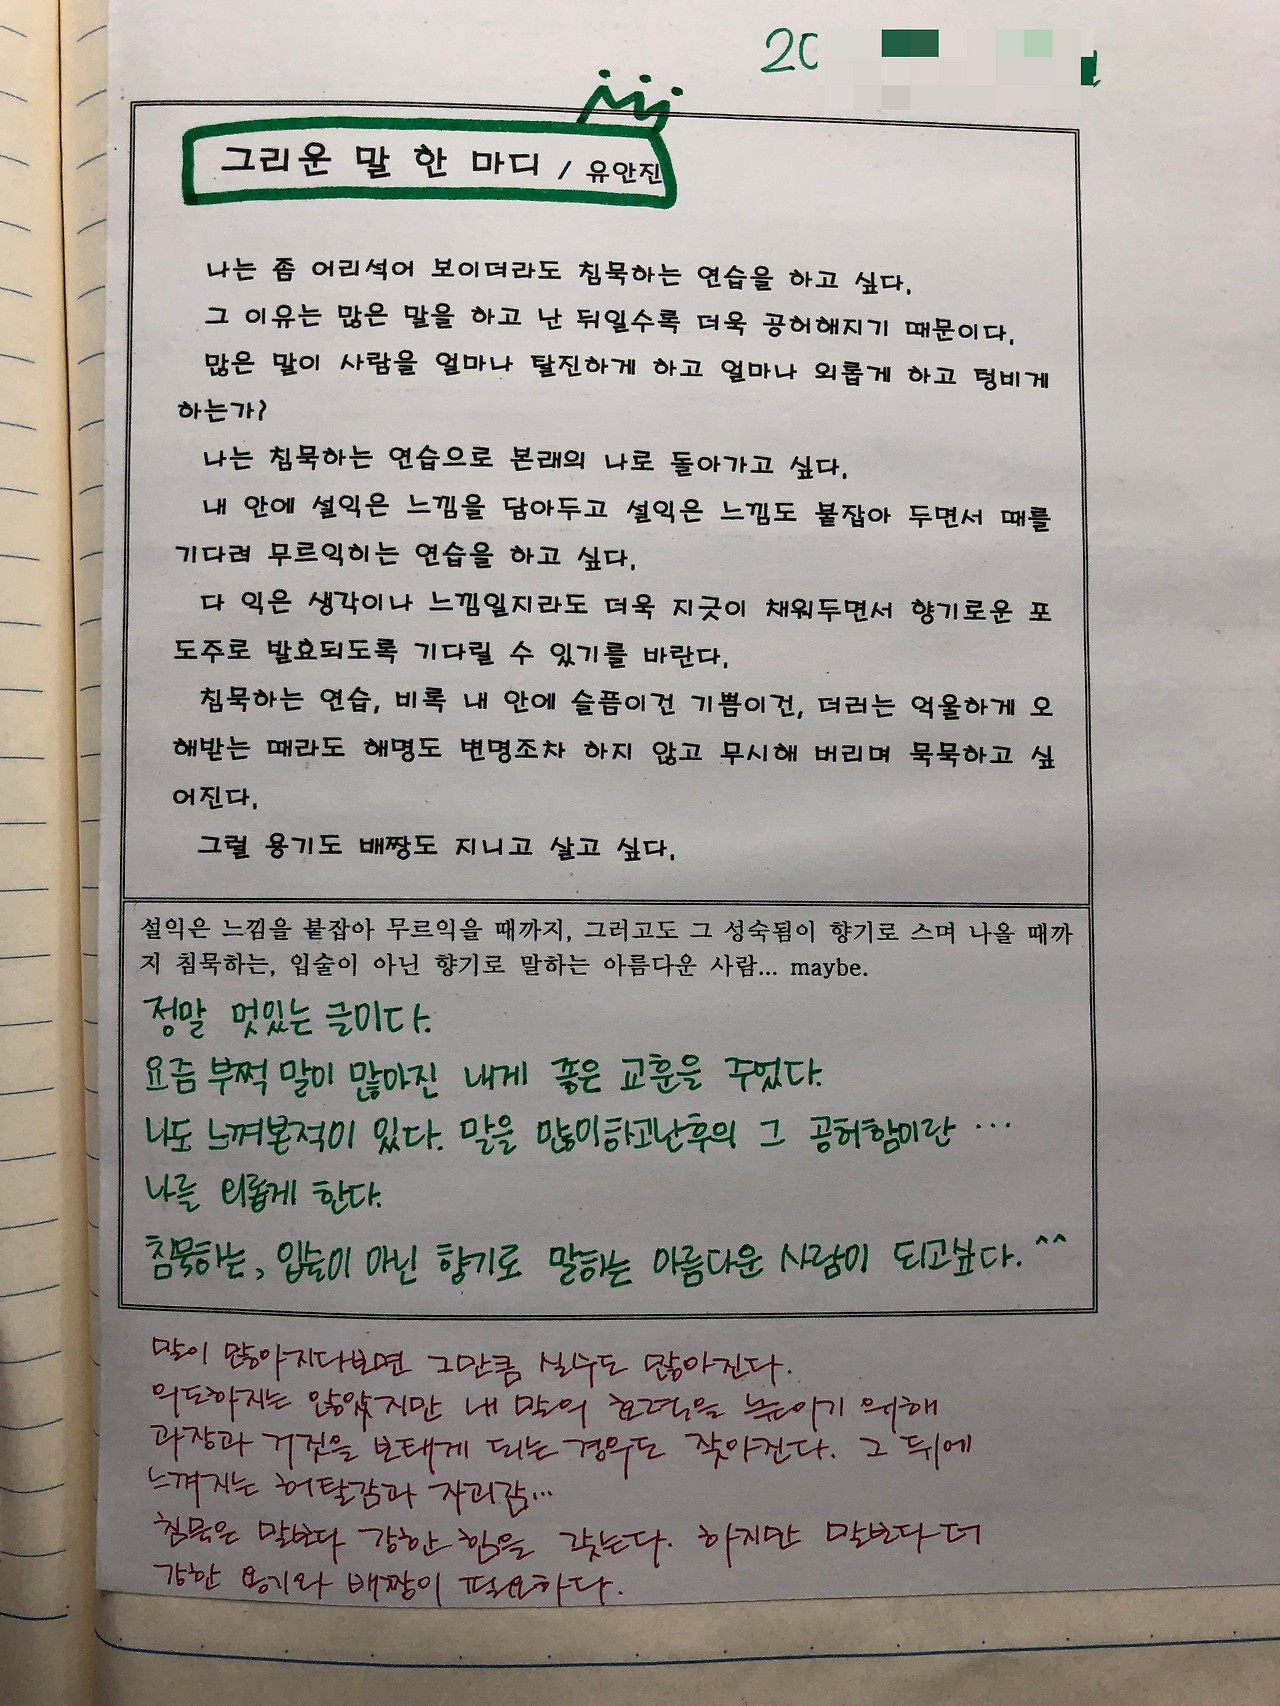 20
그리운 말 한 마디 / 유안진
나는 좀 어리석어 보이더라도 침묵하는 연습을 하고 싶다.
그 이유는 많은 말을 하고 난 뒤일수록 더욱 공허해지기 때문이다.
많은 말이 사람을 얼마나 탈진하게 하고 얼마나 외롭게 하고 텅비게
하는가?
나는 침묵하는 연습으로 본래의 나로 돌아가고 싶다.
내 안에 설익은 느낌을 담아두고 설익은 느낌도 붙잡아 두면서 때를
기다려 무르익히는 연습을 하고 싶다.
다 익은 생각이나 느낌일지라도 더욱 지긋이 채워두면서 향기로운 포
도주로 발효되도록 기다릴 수 있기를 바란다.
침묵하는 연습, 비록 내 안에 슬픔이건 기쁨이건, 더러는 억울하게 오
해받는 때라도 해명도 변명조차 하지 않고 무시해 버리며 묵묵하고 싶
어진다.
그럴 용기도 배짱도 지니고 살고 싶다.
설익은 느낌을 붙잡아 무르익을 때까지, 그러고도 그 성숙됨이 향기로 스며 나올 때까
지 침묵하는, 입술이 아닌 향기로 말하는 아름다운 사람... maybe.
정말 멋있는 글이다.
요즘 부쩍 말이 많아진 내게 좋은 교훈을 주었다.
나도 느껴본적이 있다. 말을 많이하고난후의 그 공허함이란 ...
나를 외롭게 한다.
침묵하는, 입술이 아닌 향기로 말하는 아름다운 사람이 되고싶다. ^^
말이 많아지다보면 그만큼 실수도 많아진다.
의도하지는 않았지만 내 말의 효력을 높이기 위해
과장과 거짓을 보태게 되는 경우도 잦아진다. 그 뒤에
느껴지는 허탈감과 자괴감...
침묵은 말보다 강한 힘을 갖는다. 하지만 말보다 더
강한 용기와 배짱이 필요하다.